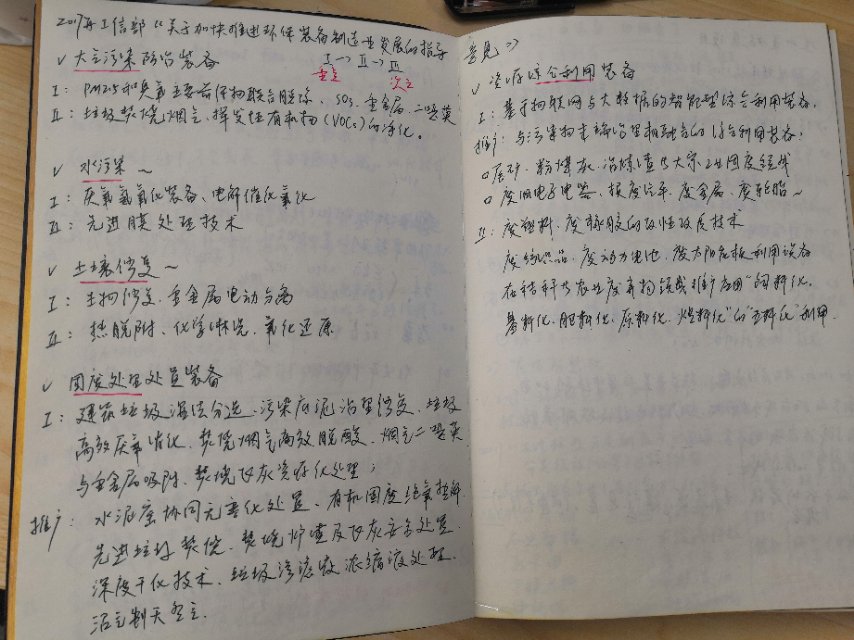 2017年工信部《关于加快推进环保装备制造业发展的指导
I→II→III
重点 次之
√ 大气污染防治装备
I: PM2.5和臭氧主要前体物联合脱除、SO3、重金属、二噁英
II: 垃圾焚烧烟气、挥发性有机物(VOCs)的净化。
√ 水污染~
I: 厌氧氨氧化装备、电解催化氧化
II: 先进膜处理技术
√ 土壤修复~
I: 生物修复、重金属电动分离
II: 热脱附、化学淋洗、氧化还原
√ 固废处理处置装备
I: 建筑垃圾湿法分选、污染底泥治理修复、垃圾
高效厌氧消化、焚烧烟气高效脱酸、烟气二噁英
与重金属吸附、焚烧飞灰资源化处理;
推广: 水泥窑协同无害化处置、有机固废绝氧热解
先进垃圾焚烧、焚烧炉渣及飞灰安全处置、
深度干化技术、垃圾渗滤液浓缩液处理、
沼气制天然气.
意见》
√ 资源综合利用装备
I: 基于物联网与大数据的智能型综合利用装备,
推广: 与污染物末端治理相融合的综合利用装备;
□ 尾矿、粉煤灰、冶炼渣等大宗工业固废~
□ 废旧电子电器、报废汽车、废金属、废轮胎~
II: 废塑料、废橡胶的改性改质技术
废纺织品、废动力电池、废太阳能板利用
在秸秆等农业废弃物领域推广应用"饲料化、
基料化、肥料化、原料化、燃料化"的"五料化"利用